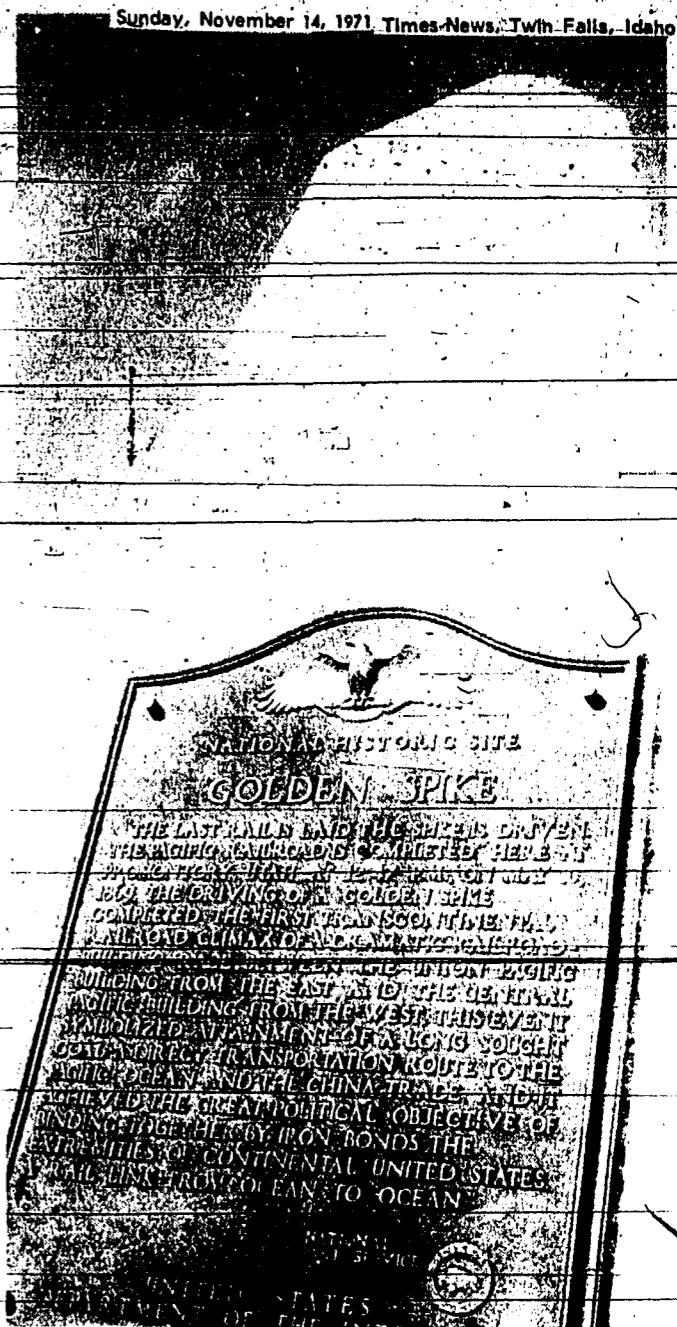 Sunday, November 14, 1971 Times-News, Twin Falls, Idaho
NATIONAL HISTORIC SITE
GOLDEN SPIKE
"THE LAST RAIL IS LAID THE SPIKE IS DRIVEN
THE PACIFIC RAILROAD IS COMPLETED" HERE AT
PROMONTORY UTAH AT 12:47 P.M. ON MAY 10,
1869, THE DRIVING OF A GOLDEN SPIKE
COMPLETED THE FIRST TRANSCONTINENTAL
RAILROAD CLIMAX OF A DRAMATIC RAILROAD-
BETWEEN THE UNION PACIFIC
BUILDING FROM THE EAST AND THE CENTRAL
PACIFIC BUILDING FROM THE WEST. THIS EVENT
SYMBOLIZED ATTAINMENT OF A LONG SOUGHT
GOAL-A DIRECT TRANSPORTATION ROUTE TO THE
PACIFIC OCEAN AND THE CHINA TRADE-AND IT
ACHIEVED THE GREAT POLITICAL OBJECTIVE OF
BINDING TOGETHER BY IRON BONDS THE
EXTREMITIES OF CONTINENTAL UNITED STATES-
A RAIL LINK FROM OCEAN TO OCEAN
NATIONAL
SERVICE
UNITED STATES
DEPARTMENT OF THE